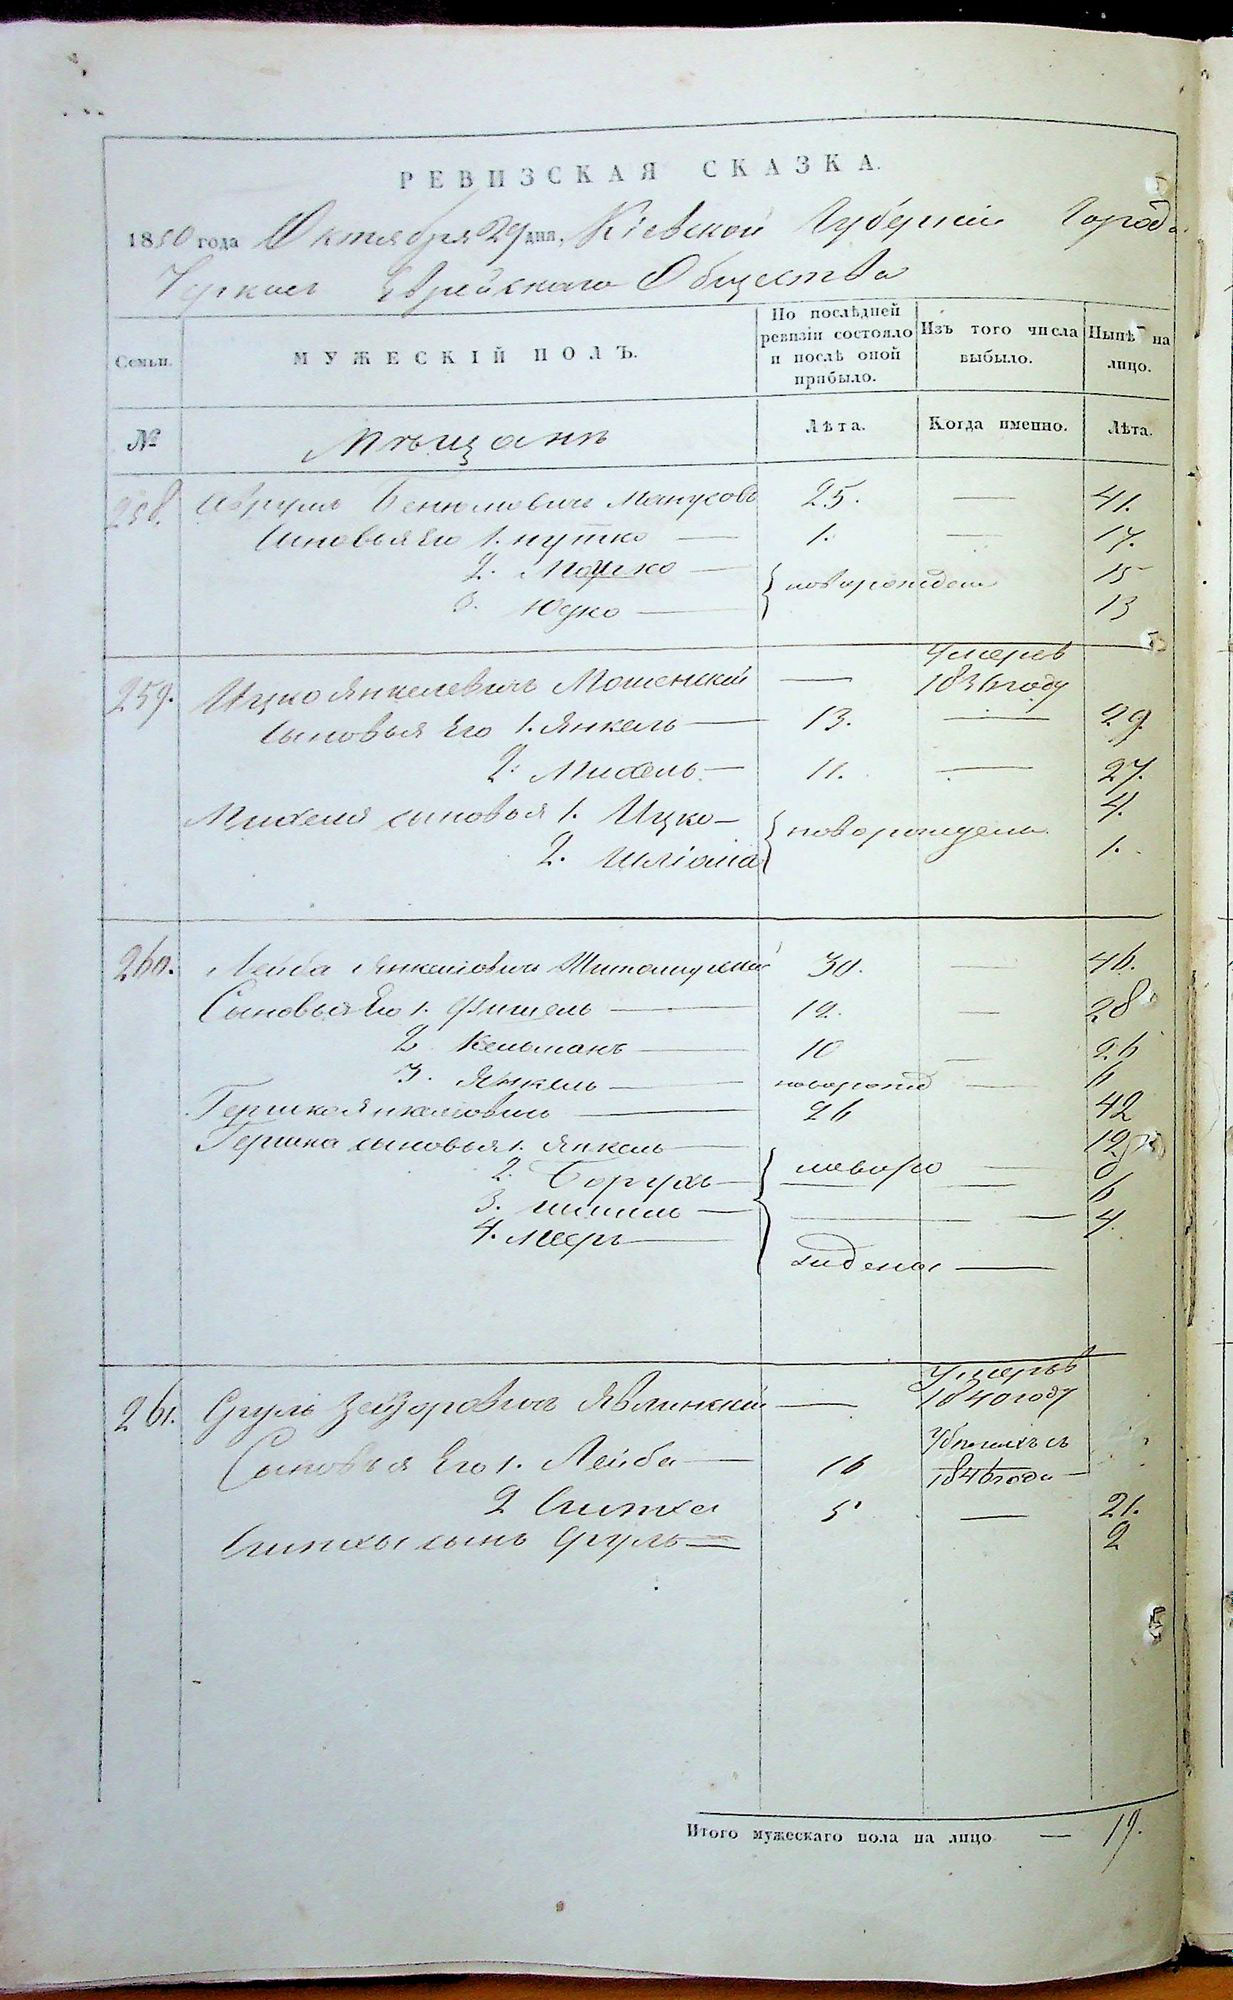 РЕВИЗСКАЯ СКАЗКА.
1850 года Октября 29 дня, Кіевской Губерніи Города
Черкас Еврейскаго Общества
Семьи.
МУЖЕСКІЙ ПОЛЪ.
По послѣдней ревизіи состояло и послѣ оной прибыло.
Изъ того числа выбыло.
Нынѣ на лицо.
№
Мѣщанъ
Лѣта.
Когда именно.
Лѣта.
258. Беніоминовичъ 25. — 41.
Сыновья его 1. — 1. — 17.
2. Мошко — { новорождены 15
3. Юдко — 13
259. Ицко Янкелевичъ Мошенскій — Умеръ 1836 году
Сыновья Его 1. Янкель — 13. — 29.
2. Михель — 11. — 27.
Михеля сыновья 1. Ицко — { новорождены 4.
2. Шліома 1.
260. Лейба Янкелевичъ Житомирскій 30. — 46.
Сыновья Его 1. Фишель — 12. — 28
2. Кельманъ — 10 — 26
3. Янкель — новорожд — 6
Гершко Янкелевичъ — 26 42
Гершка сыновья 1. Янкель — 12
2. Борухъ — { новоро — 8
3. — 6
4. Мееръ — 4.
ждены —
261. Сруль Явлинскій — Умеръ 1840 году
Сыновья Его 1. Лейба — 16 1846 года —
2 Симха 5 — 21.
Симхи сынъ Сруль — 2
Итого мужескаго пола на лицо — 19.